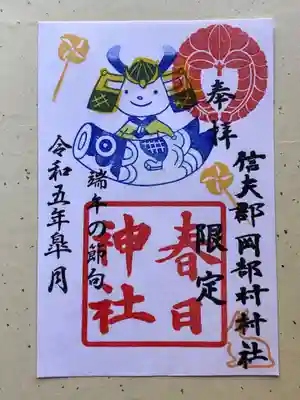 奉拝
信夫郡岡部村村社
限定
春日
神社
端午の節句
令和五年皐月